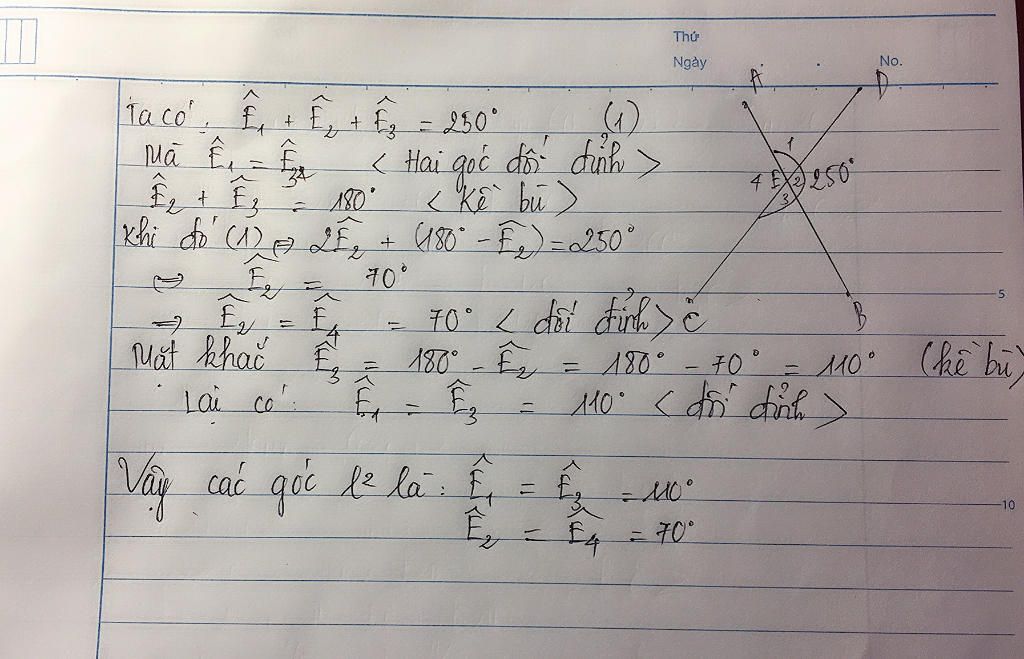 Thứ
Ngày
No.
Ta có: Ê1 + Ê2 + Ê3 = 250° (1)
Mà Ê1 = Ê3 < Hai góc đối đỉnh >
Ê2 + Ê3 = 180° < kề bù >
Khi đó (1) ⇔ 2Ê2 + (180° - Ê2) = 250°
⇔ Ê2 = 70°
⇒ Ê2 = Ê4 = 70° < đối đỉnh >
Mặt khác Ê3 = 180° - Ê2 = 180° - 70° = 110° (kề bù)
Lại có: Ê1 = Ê3 = 110° < đối đỉnh >
Vậy các góc l² là: Ê1 = Ê3 = 110°
Ê2 = Ê4 = 70°
A D
1
4 E 2 250°
3
C B
5
10